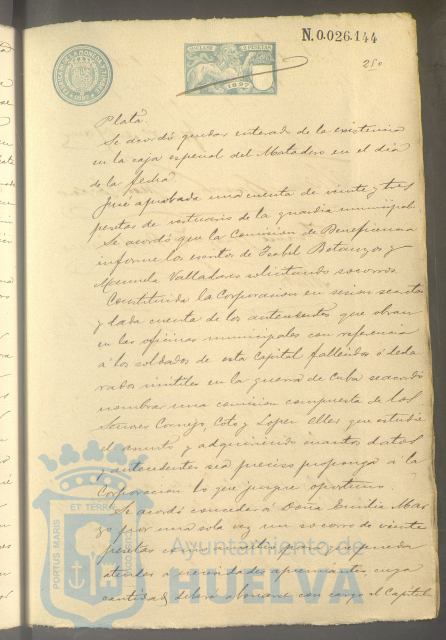 N.0.026.144
2 PESETAS
1897
250
Plata.
Se acordó quedar enterado de la existencia
en la caja especial del Matadero en el día
de la fecha.
Fué aprobada una cuenta de veinte y tres
pesetas de vestuario de la guardia municipal.
Se acordó que la Comision de Beneficencia
informe los escritos de Isabel Betanzos y
Manuela Valladares solicitando socorros.
Constituida la Corporacion en sesion secreta
y dada cuenta de los antecedentes que obran
en las oficinas municipales con referencia
á los soldados de esta Capital fallecidos ó decla
rados inutiles en la guerra de Cuba se acordó
nombrar una comision compuesta de los
Señores Cornejo, Coto y Lopez Elles que estudie
el asunto y adquiriendo cuantos datos
y antecedentes sea preciso proponga á la
Corporacion lo que juzgue oportuno.
Se acordó conceder á Doña Emilia Mar
zo por una sola vez un socorro de veinte
pesetas con que pueda
atender á necesidades apremiantes, cuya
cantidad deberá abonarse con cargo al Capitulo
PORTUS MARIS ET TERRAE CUSTODIA
Ayuntamiento de
HUELVA